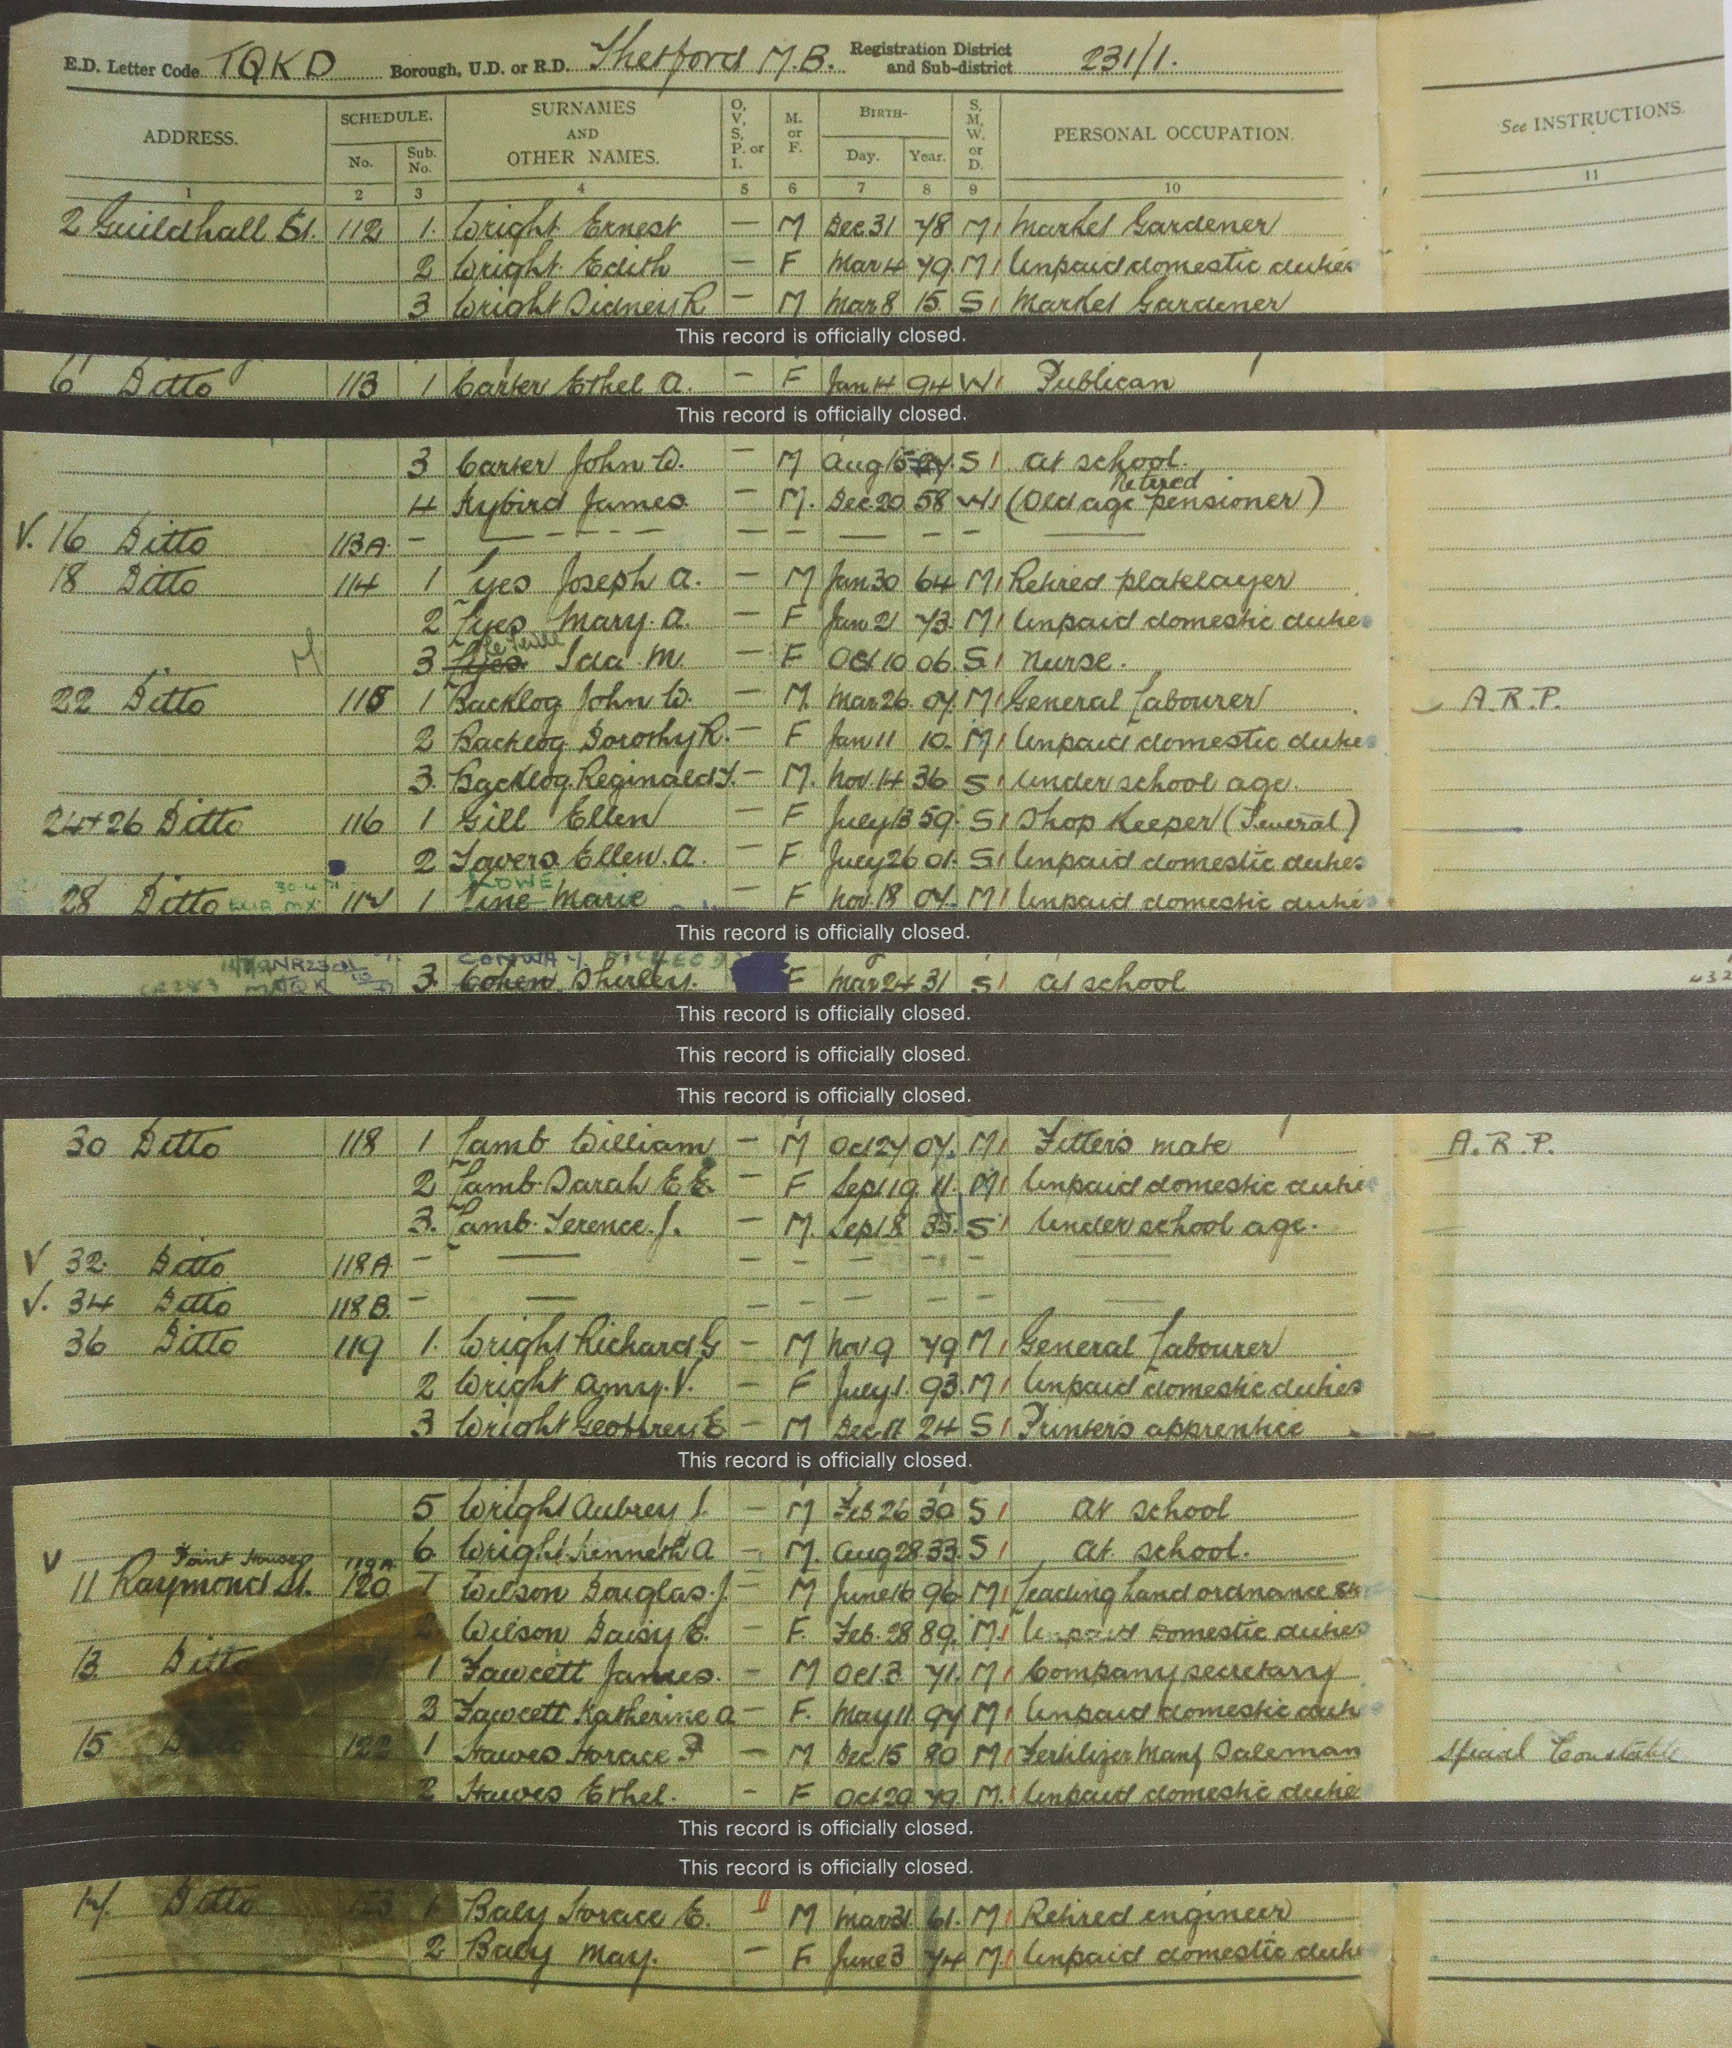 E.D. Letter Code TQKD Borough, U.D. or R.D. Thetford M.B. Registration District and Sub-district 231/1.
ADDRESS. SCHEDULE. No. Sub. No. SURNAMES AND OTHER NAMES. O, V, S, P. or I. M. or F. BIRTH- Day. Year. S, M, W. or D. PERSONAL OCCUPATION. See INSTRUCTIONS.
1 2 3 4 5 6 7 8 9 10 11
2 Guildhall St. 112 1. Wright Ernest — M Dec 31 78 M Market Gardener
2 Wright Edith — F Mar 4 79 M Unpaid domestic duties
3 Wright Sidney R — M Mar 8 15 S Market Gardener
This record is officially closed.
6 Ditto 113 1 Carter Ethel A. — F Jan 14 94 W Publican
This record is officially closed.
3 Carter John W. — M Aug 15 S At school.
4 Hybird James — M. Dec 20 58 W (Old age Retired pensioner)
V. 16 Ditto 113A. — — — — — — — — — —
18 Ditto 114 1 Lyes Joseph A. — M Jan 30 64 M Retired platelayer
2 Lyes Mary. A. — F Jan 21 73 M Unpaid domestic duties
M 3 Lyes Ida M. — F Oct 10 06 S Nurse.
22 Ditto 115 1 Backlog John W. — M. Mar 26 07 M General Labourer A.R.P.
2 Backlog Dorothy R. — F Jan 11 10 M Unpaid domestic duties
3. Backlog Reginald — M. Nov. 14 36 S Under school age.
24+26 Ditto 116 1 Gill Ellen — F July 13 59 S Shop Keeper
2 Ellen. A. — F July 26 01 S Unpaid domestic duties
28 Ditto 117 1 LOWE Line Marie — F Nov. 18 07 M Unpaid domestic duties
This record is officially closed.
CONWAY
3. Cohen Shirley. F Mar 24 31 S At school
This record is officially closed.
This record is officially closed.
This record is officially closed.
30 Ditto 118 1 Lamb William — M Oct 27 07 M Fitter's mate A.R.P.
2 Lamb Sarah E E — F Sept 19 11 M Unpaid domestic duties
3. Lamb Terence J. — M. Sep 18 35 S Under school age.
V 32 Ditto 118A — — — — — — — —
V. 34 Ditto 118B. — — — — — — — —
36 Ditto 119 1. Wright Richard G — M Nov 9 79 M General Labourer
2 Wright Amy. V. — F July 1 93 M Unpaid domestic duties
3 Wright Geoffrey E — M Dec 17 24 S Printer's apprentice
This record is officially closed.
5 Wright Aubrey J. — M Feb 26 30 S At school
6 Wright Kenneth A — M. Aug 28 33 S At school.
V 119A.
11 Raymond St. 120 1 Wilson Douglas. J. — M June 16 96 M Leading hand ordnance
2 Wilson Daisy E. — F. Feb. 28 89 M Unpaid domestic duties
13 Ditto 1 Fawcett James. — M Oct. 3 71. M Company secretary
2 Fawcett Katherine A — F. May 11 97 M Unpaid domestic duties
15 Ditto 122 1 Hawes Horace F — M Dec 15 80 M Fertilizer Manf Saleman Special Constable
2 Hawes Ethel. — F Oct 29 79 M. Unpaid domestic duties
This record is officially closed.
This record is officially closed.
17. Ditto 123 1 Baly Horace E. M Mar 31 61 M Retired engineer
2 Baly May. — F June 3 74 M Unpaid domestic duties